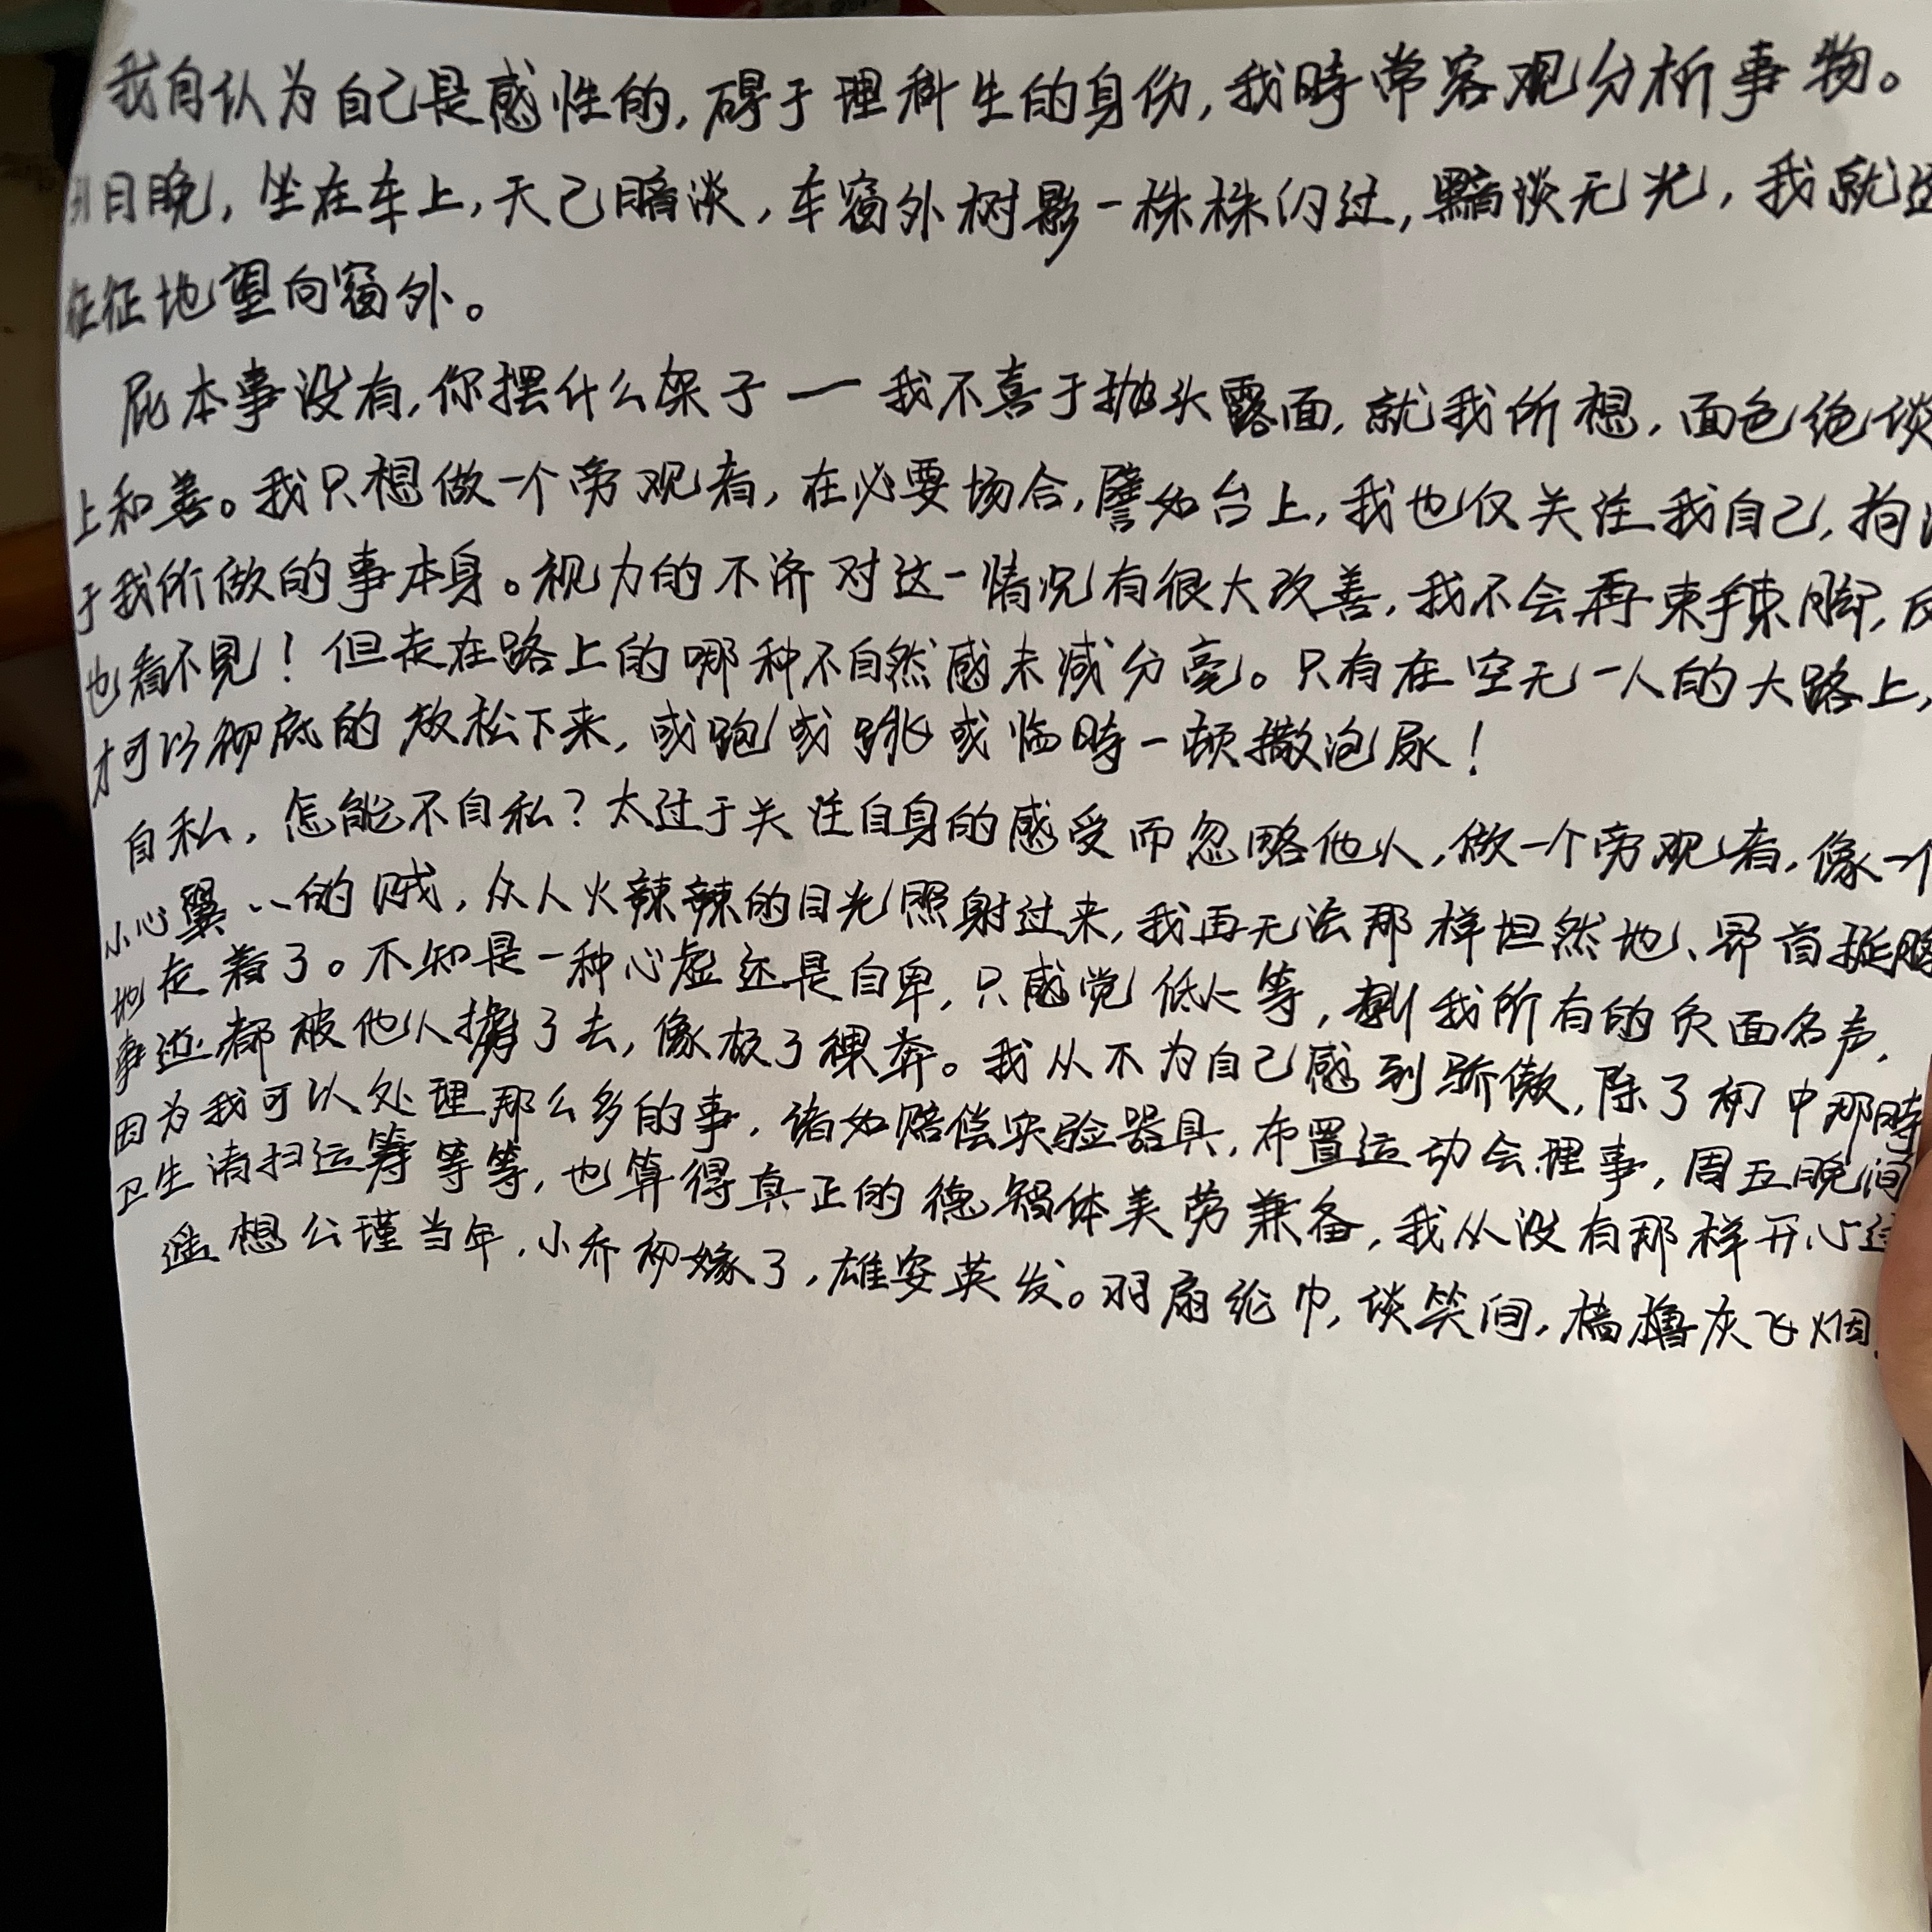 我自认为自己是感性的,碍于理科生的身份,我時常客观分析事物。
日晚,坐在车上,天已暗淡,车窗外树影一株株闪过,黯淡无光,我就这
怔怔地望向窗外。
屁本事没有,你摆什么架子——我不喜于抛头露面,就我所想,面色绝谈
上和善。我只想做一个旁观者,在必要场合,譬如台上,我也仅关注我自己,拘泥
于我所做的事本身。视力的不济对这一情况有很大改善,我不会再束手束脚,反
也看不见!但走在路上的哪种不自然感未减分毫。只有在空无一人的大路上,
才可以彻底的放松下来,或跑或跳或临時一顿撒泡尿!
自私,怎能不自私?太过于关注自身的感受而忽略他人,做一个旁观者,像一个
小心翼〻的贼,众人火辣辣的目光照射过来,我再无法那样坦然地、昂首挺胸
地走着了。不知是一种心虚还是自卑,只感觉低人等,我所有的负面名声,
事迹都被他人掳了去,像极了裸奔。我从不为自己感到骄傲,除了初中那時
因为我可以处理那么多的事,诸如赔偿实验器具,布置运动会理事,周五晚间
卫生清扫运筹等等,也算得真正的德智体美劳兼备,我从没有那样开心过
遥想公瑾当年,小乔初嫁了,雄姿英发。羽扇纶巾,谈笑间,樯橹灰飞烟